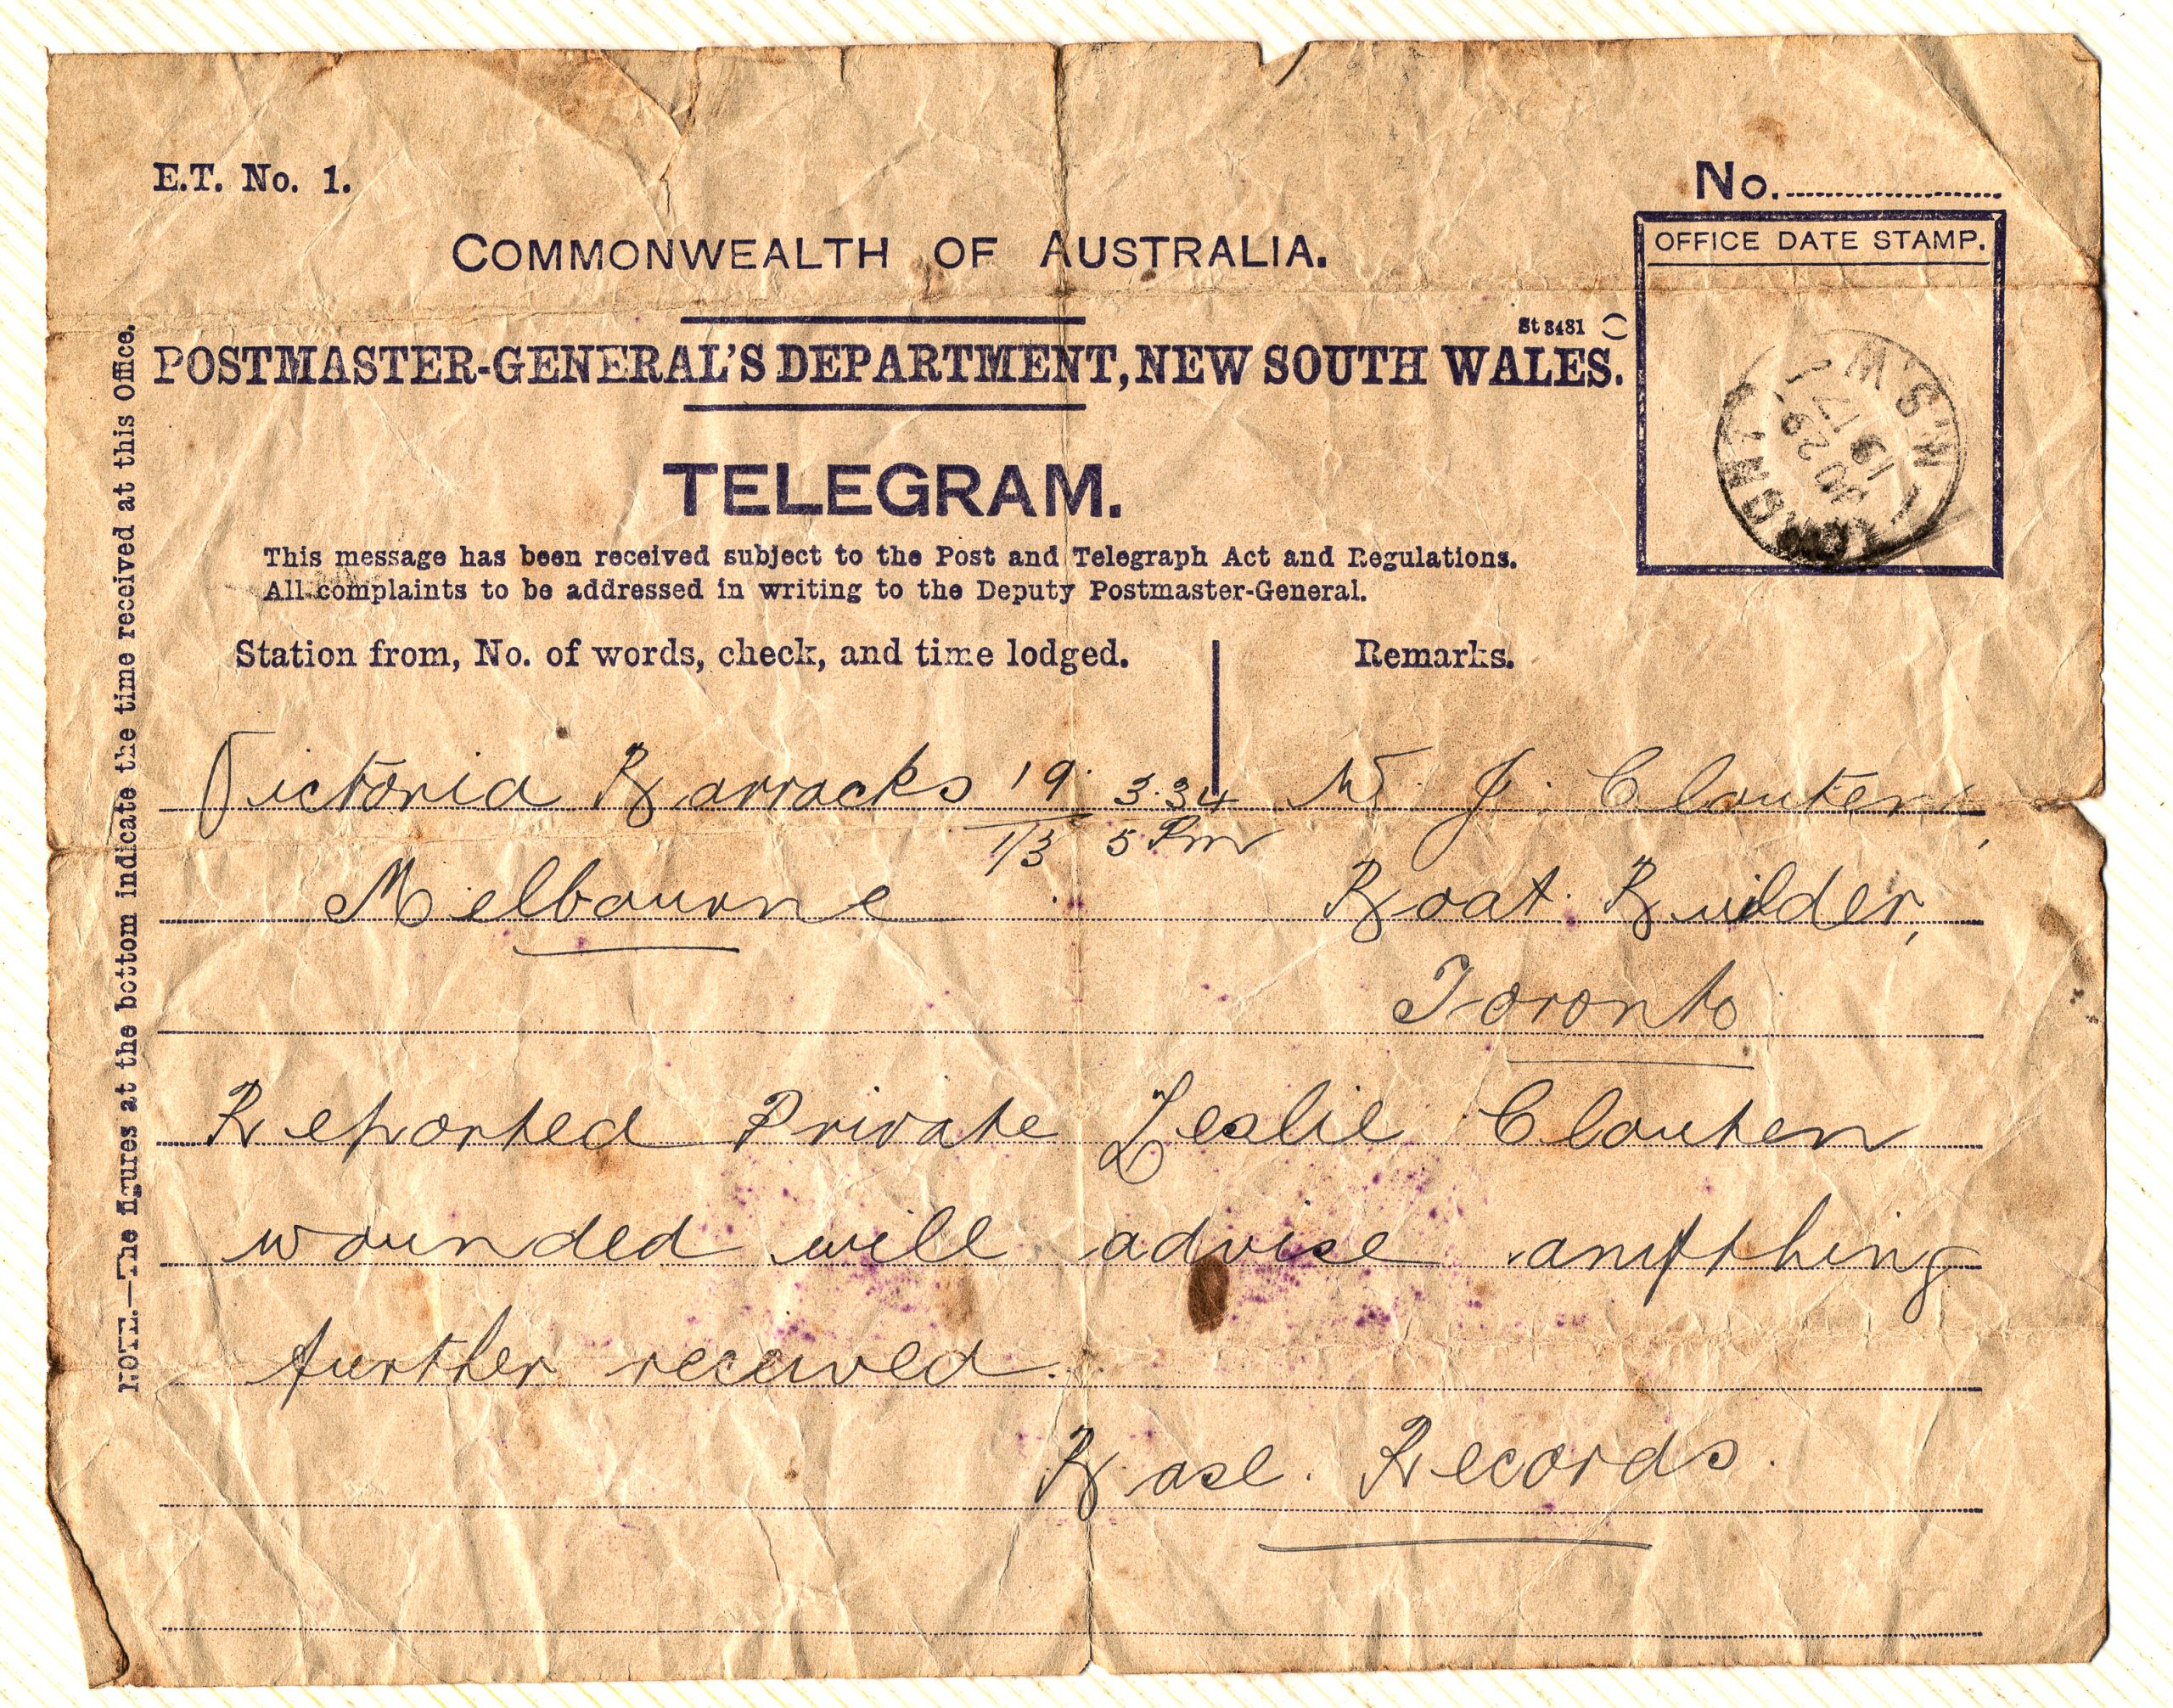 E.T. No. 1.
No.
COMMONWEALTH OF AUSTRALIA.
OFFICE DATE STAMP.
St 8481
POSTMASTER-GENERAL'S DEPARTMENT, NEW SOUTH WALES.
N.S.W
19 17
TELEGRAM.
This message has been received subject to the Post and Telegraph Act and Regulations.
All complaints to be addressed in writing to the Deputy Postmaster-General.
Station from, No. of words, check, and time lodged.
Remarks.
NOTE.—The figures at the bottom indicate the time received at this Office.
Victoria Barracks 19 3.34 W. J. Clouten,
1/3 5 Pm
Melbourne Boat Builder,
Toronto
Reported Private Leslie Clouten
wounded will advise anything
further received.
Base Records.